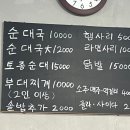 순대국 10000
순대국大 12000
토종순대 15000
부대찌개 10000
(2인 이상)
솥밥추가 2000
햄사리 500
라면사리 100
닭발 15000
소주·맥주·막걸리 400
콜라·사이다 2